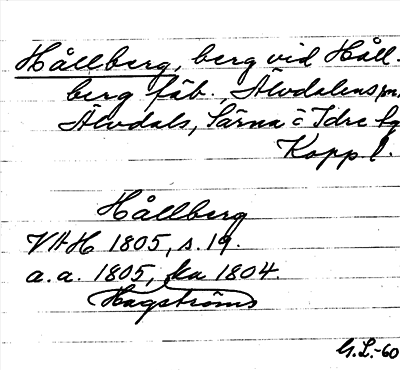 Hållberg, berg vid Håll-
berg fäb., Älvdalens sn,
Älvdals, Särna o Idre tg
Kopp l.
Hållberg
VAH 1805, s. 19.
a.a. 1805, ka 1804.
Hagströms
G.L.-60